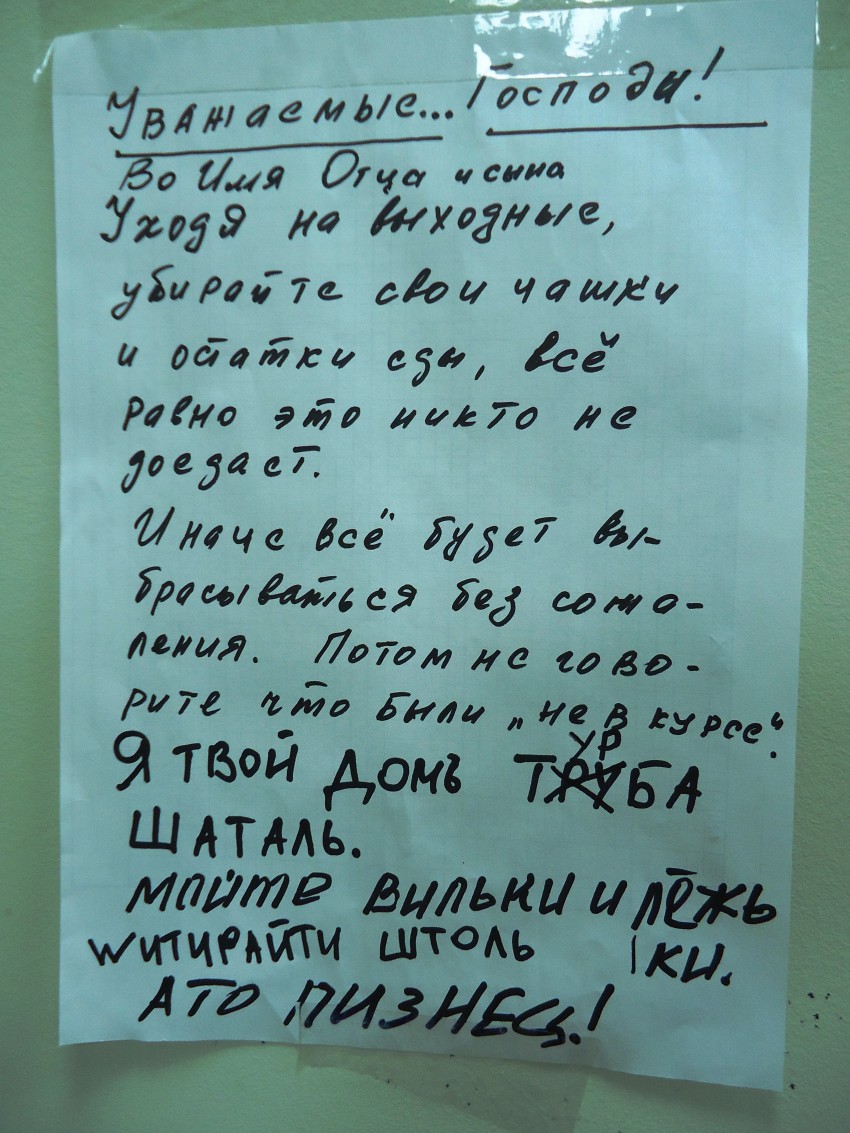 Уважаемые... Господи!
Во Имя Отца и сына
Уходя на выходные,
убирайте свои чашки
и остатки еды, всё
равно это никто не
доедает.
Иначе всё будет вы-
брасываться без сожа-
ления. Потом не гово-
рите что были „не в курсе".
УР
Я ТВОЙ ДОМЪ ТРУБА
ШАТАЛЬ.
МОЙТЕ ВИЛЬКИ И ЛЁЖЬ
КИ.
WИТИРАЙТИ ШТОЛЬ
А ТО ПИЗНЕЦ!